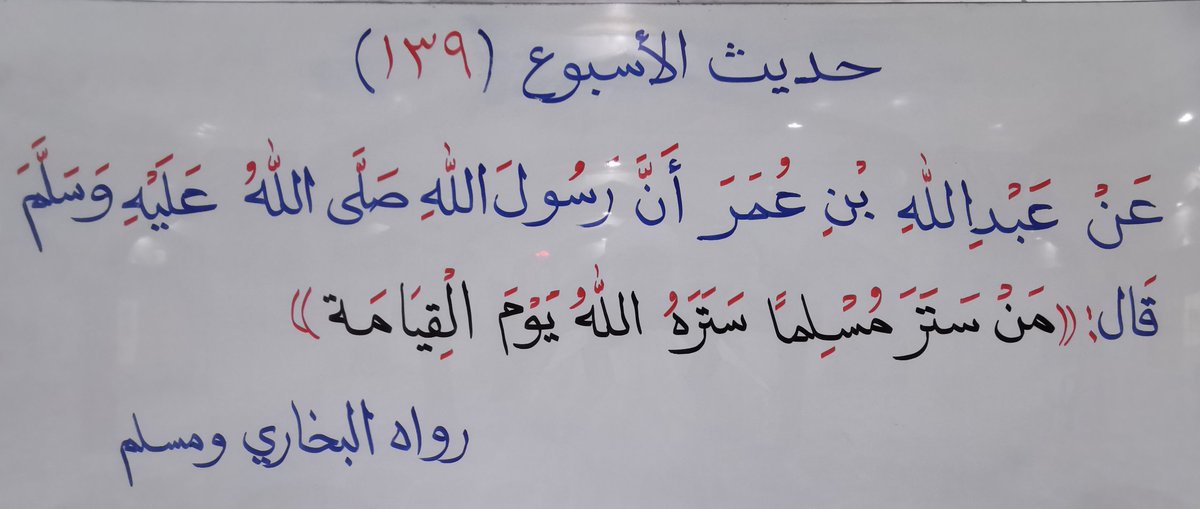 حديث الأسبوع (١٣٩)
عَنْ عَبْدِاللهِ بْنِ عُمَرَ أَنَّ رَسُولَ اللهِ صَلَّى اللهُ عَلَيْهِ وَسَلَّمَ
قَال: ((مَنْ سَتَرَ مُسْلِمًا سَتَرَهُ اللهُ يَوْمَ الْقِيَامَة))
رواه البخاري ومسلم